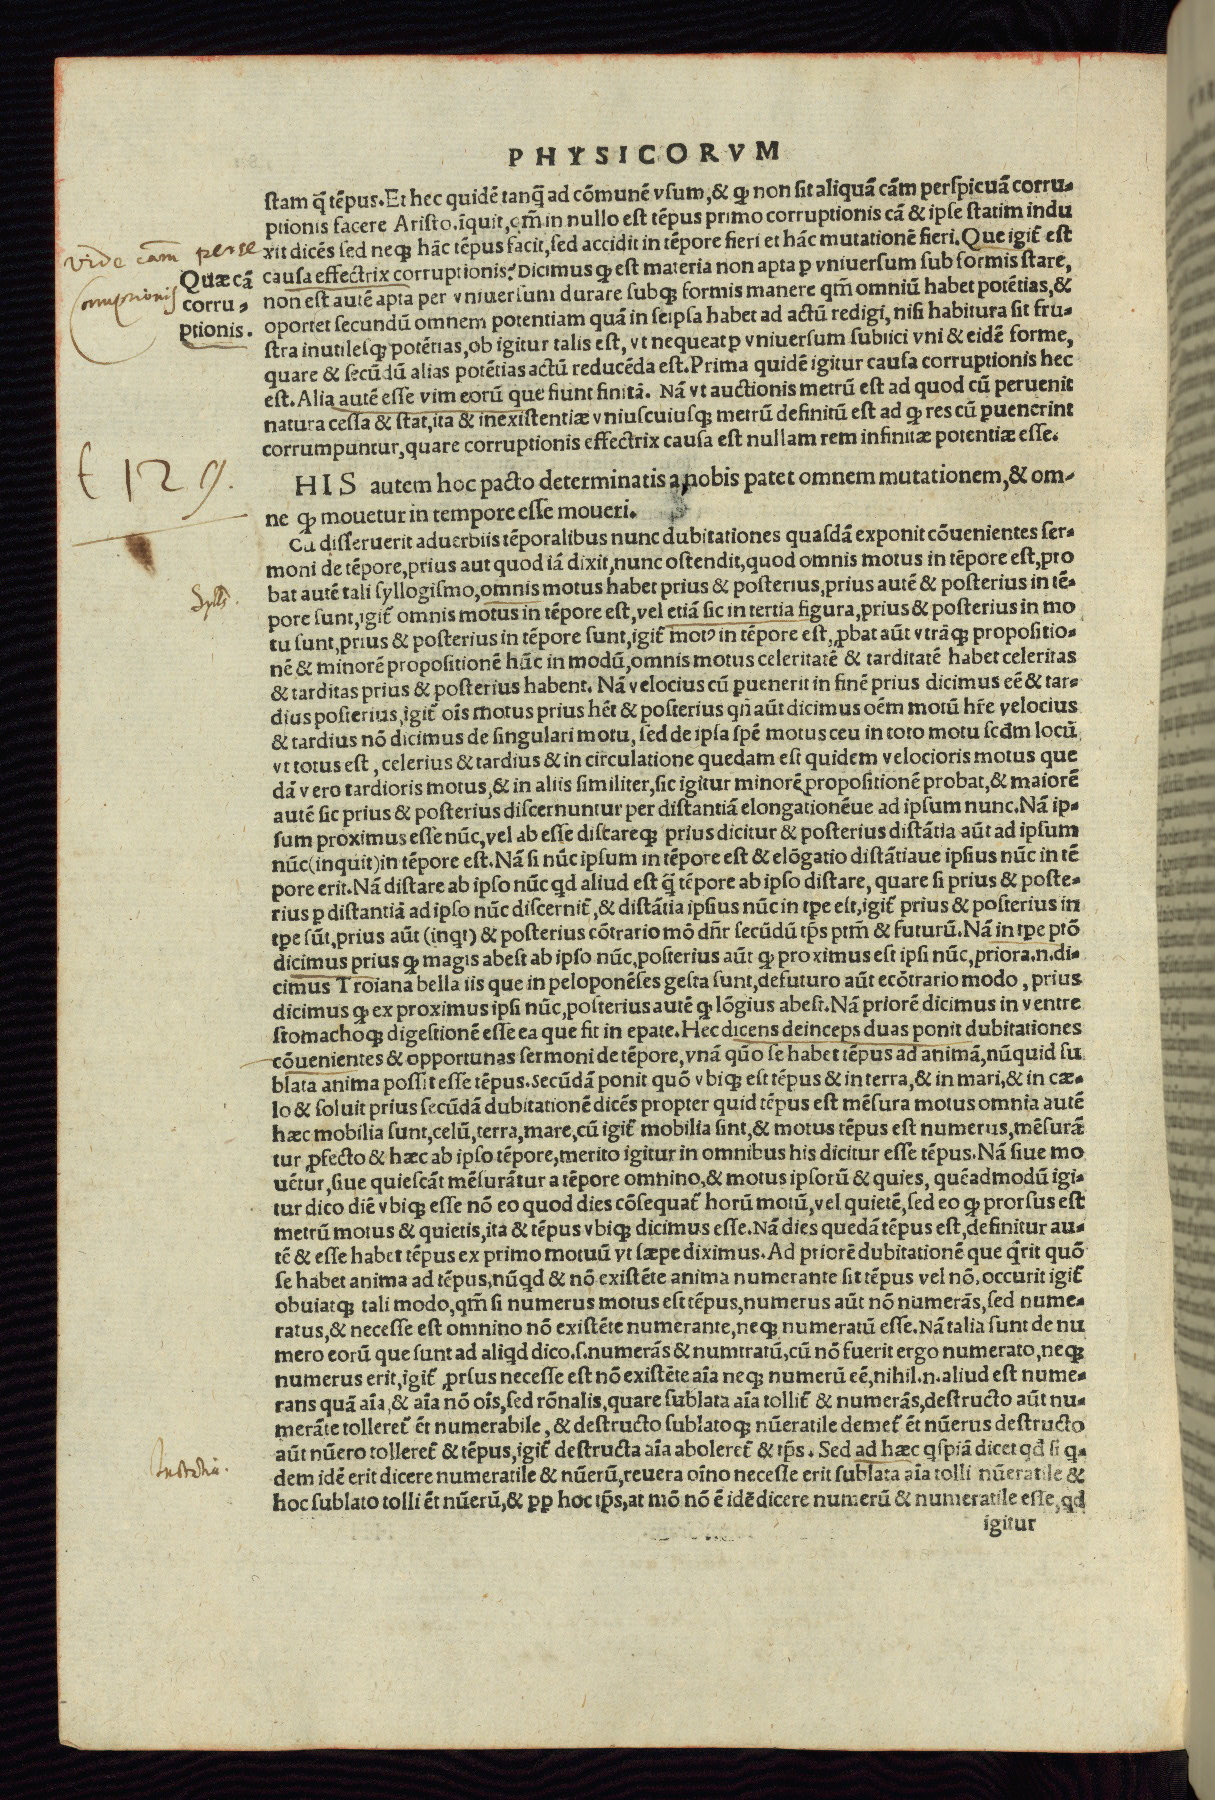 PHYSICORVM
stam q̃ tẽpus. Et hec quidẽ tanq̃ ad cõmunẽ vsum, & qɜ non sit aliquã cãm perspicuã corru-
ptionis facere Aristo. ĩquit, qm̃ in nullo est tẽpus primo corruptionis cã & ipse statim indu
xit dicẽs sed neqɜ hãc tẽpus facit, sed accidit in tẽpore fieri et hãc mutationẽ fieri. Que igit̃ est
vide cam per se
causa effectrix corruptionis? Dicimus qɜ est materia non apta p vniuersum sub formis stare,
Quæ cã
corru-
ptionis.
corruptionis
non est autẽ apta per vniuersum durare subqɜ formis manere qm̃ omniũ habet potẽtias, &
oportet secundũ omnem potentiam quã in seipsa habet ad actũ redigi, nisi habitura sit fru-
stra inutilesqɜ potẽtias, ob igitur talis est, vt nequeat p vniuersum subiici vni & eidẽ forme,
quare & secũdũ alias potẽtias actũ reducẽda est. Prima quidẽ igitur causa corruptionis hec
est. Alia autẽ esse vim eorũ que fiunt finitã. Nã vt auctionis metrũ est ad quod cũ peruenit
natura cessa & stat, ita & inexistentiæ vniuscuiusqɜ metrũ definitũ est ad qɜ res cũ puenerint
corrumpuntur, quare corruptionis effectrix causa est nullam rem infinitæ potentiæ esse.
t 129.
HIS autem hoc pacto determinatis a nobis patet omnem mutationem, & om-
ne qɜ mouetur in tempore esse moueri.
Cũ disseruerit aduerbiis tẽporalibus nunc dubitationes quasdã exponit cõuenientes ser-
moni de tẽpore, prius aut quod iã dixit, nunc ostendit, quod omnis motus in tẽpore est, pro
bat autẽ tali syllogismo, omnis motus habet prius & posterius, prius autẽ & posterius in tẽ-
pore sunt, igit̃ omnis motus in tẽpore est, vel etiã sic in tertia figura, prius & posterius in mo
tu sunt, prius & posterius in tẽpore sunt, igit̃ motꝰ in tẽpore est, ꝓbat aũt vtrãqɜ propositio-
nẽ & minorẽ propositionẽ hũc in modũ, omnis motus celeritatẽ & tarditatẽ habet celeritas
& tarditas prius & posterius habent. Nã velocius cũ puenerit in finẽ prius dicimus eẽ & tar-
dius posterius, igit̃ oĩs motus prius hẽt & posterius qñ aũt dicimus oẽm motũ hr̃e velocius
& tardius nõ dicimus de singulari motu, sed de ipsa spẽ motus ceu in toto motu scdm locũ
vt totus est, celerius & tardius & in circulatione quedam est quidem velocioris motus que
dã vero tardioris motus, & in aliis similiter, sic igitur minorẽ propositionẽ probat, & maiorẽ
autẽ sic prius & posterius discernuntur per distantiã elongationẽue ad ipsum nunc. Nã ip-
sum proximus esse nũc, vel ab esse distareqɜ prius dicitur & posterius distãtia aũt ad ipsum
nũc (inquit) in tẽpore est. Nã si nũc ipsum in tẽpore est & elõgatio distãtiaue ipsius nũc in tẽ
pore erit. Nã distare ab ipso nũc qd aliud est q̃ tẽpore ab ipso distare, quare si prius & poste-
rius p distantiã ad ipso nũc discernit̃, & distãtia ipsius nũc in tpe est, igit̃ prius & posterius in
tpe sũt, prius aũt (inqt) & posterius cõtrario mõ dñr secũdũ tp̃s ptm̃ & futurũ. Nã in tpe ptõ
dicimus prius qɜ magis abest ab ipso nũc, posterius aũt qɜ proximus est ipsi nũc, priora .n. di-
cimus Troiana bella iis que in peloponẽses gesta sunt, de futuro aũt ecõtrario modo, prius
dicimus qɜ ex proximus ipsi nũc, posterius autẽ qɜ lõgius abest. Nã priorẽ dicimus in ventre
stomachoqɜ digestionẽ esse ea que fit in epate. Hec dicens deinceps duas ponit dubitationes
cõuenientes & opportunas sermoni de tẽpore, vnã quõ se habet tẽpus ad animã, nũquid su
blata anima possit esse tẽpus. Secũdã ponit quõ vbiqɜ est tẽpus & in terra, & in mari, & in cæ-
lo & soluit prius secũdã dubitationẽ dicẽs propter quid tẽpus est mẽsura motus omnia autẽ
hæc mobilia sunt, celũ, terra, mare, cũ igit̃ mobilia sint, & motus tẽpus est numerus, mẽsurã
tur ꝓfecto & hæc ab ipso tẽpore, merito igitur in omnibus his dicitur esse tẽpus. Nã siue mo
uẽtur, siue quiescãt mẽsurãtur a tẽpore omnino, & motus ipsorũ & quies, quẽadmodũ igi-
tur dico diẽ vbiqɜ esse nõ eo quod dies cõsequat̃ horũ motũ, vel quietẽ, sed eo qɜ prorsus est
metrũ motus & quietis, ita & tẽpus vbiqɜ dicimus esse. Nã dies quedã tẽpus est, definitur au-
tẽ & esse habet tẽpus ex primo motuũ vt sæpe diximus. Ad priorẽ dubitationẽ que q̃rit quõ
se habet anima ad tẽpus, nũqd & nõ existẽte anima numerante sit tẽpus vel nõ, occurit igit̃
obuiatqɜ tali modo, qm̃ si numerus motus est tẽpus, numerus aũt nõ numerãs, sed nume-
ratus, & necesse est omnino nõ existẽte numerante, neqɜ numeratũ esse. Nã talia sunt de nu
mero eorũ que sunt ad aliqd dico .s. numerãs & numeratũ, cũ nõ fuerit ergo numerato, neqɜ
numerus erit, igit̃ ꝓrsus necesse est nõ existẽte aĩa neqɜ numerũ eẽ, nihil .n. aliud est nume-
rans quã aĩa, & aĩa nõ oĩs, sed rõnalis, quare sublata aĩa tollit̃ & numerãs, destructo aũt nu-
merãte tolleret̃ ẽt numerabile, & destructo sublatoqɜ nũeratile demet̃ ẽt nũerus destructo
aũt nũero tolleret̃ & tẽpus, igit̃ destructa aĩa aboleret̃ & tp̃s. Sed ad hæc qspiã dicet qd si q-
dem idẽ erit dicere numeratile & nũerũ, reuera oĩno necesse erit sublata aĩa tolli nũeratile &
Instãtia.
hoc sublato tolli ẽt nũerũ, & pp hoc tp̃s, at mõ nõ ẽ idẽ dicere numerũ & numeratile esse, qd
igitur